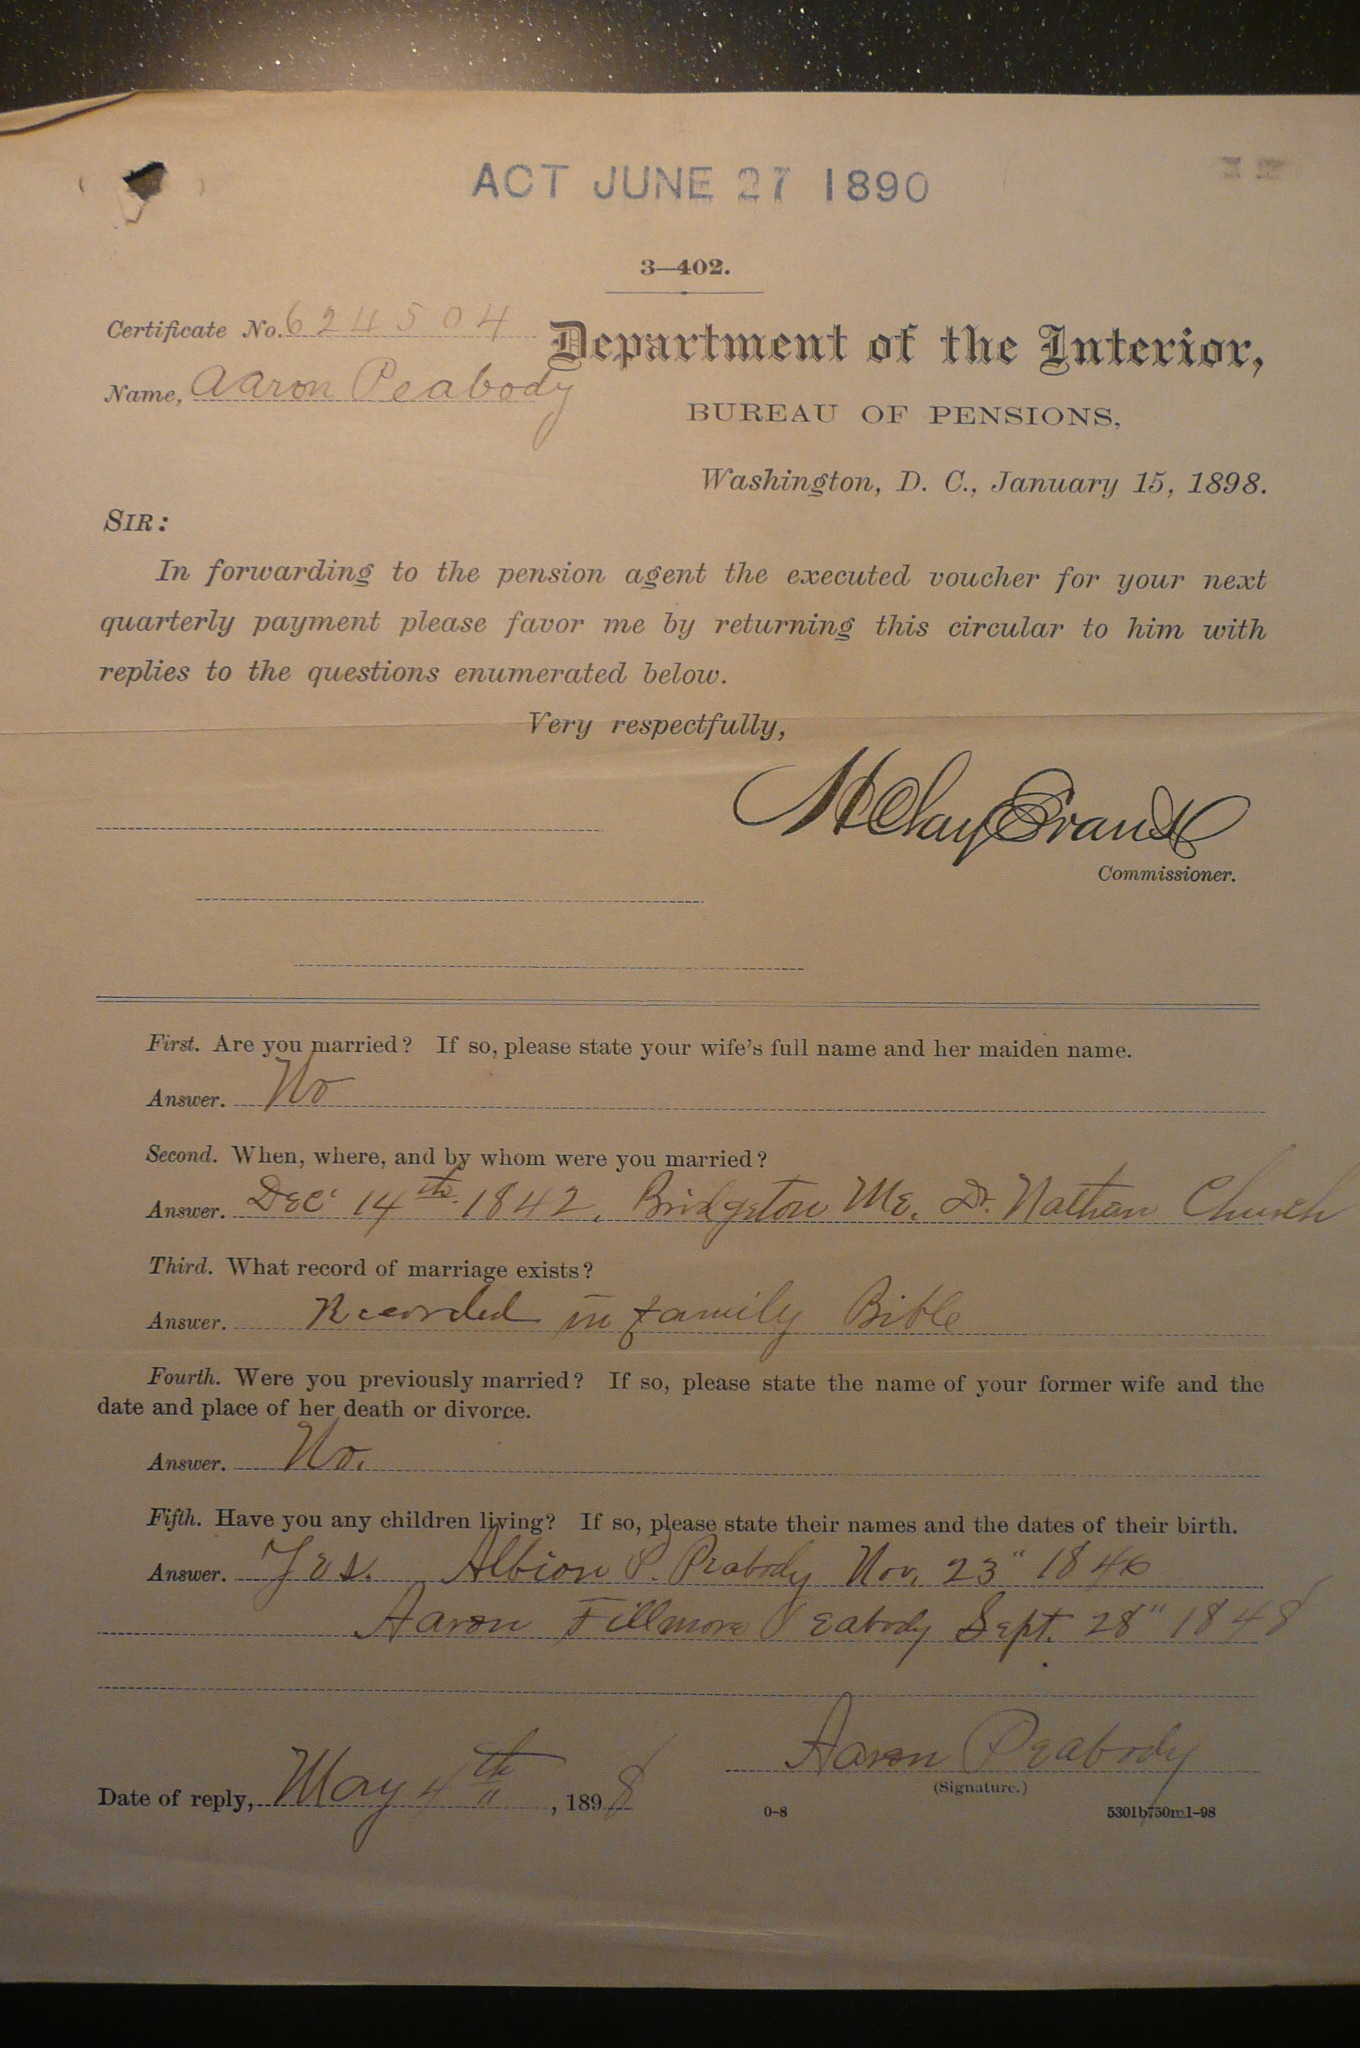 ACT JUNE 27 1890
3—402.
Certificate No. 624504
Department of the Interior,
Name, Aaron Peabody
BUREAU OF PENSIONS,
Washington, D. C., January 15, 1898.
SIR:
In forwarding to the pension agent the executed voucher for your next
quarterly payment please favor me by returning this circular to him with
replies to the questions enumerated below.
Very respectfully,
H Clay Evans
Commissioner.
First. Are you married? If so, please state your wife's full name and her maiden name.
Answer. No
Second. When, where, and by whom were you married?
Answer. Dec 14th 1842. Bridgton Me. Dr. Nathan Church
Third. What record of marriage exists?
Answer. Recorded in family Bible
Fourth. Were you previously married? If so, please state the name of your former wife and the
date and place of her death or divorce.
Answer. No.
Fifth. Have you any children living? If so, please state their names and the dates of their birth.
Answer. Yes. Albion P. Peabody Nov. 23" 1846
Aaron Fillmore Peabody Sept. 28" 1848
Aaron Peabody
(Signature.)
Date of reply, May 4th, 1898
0-8
5301b750m1-98